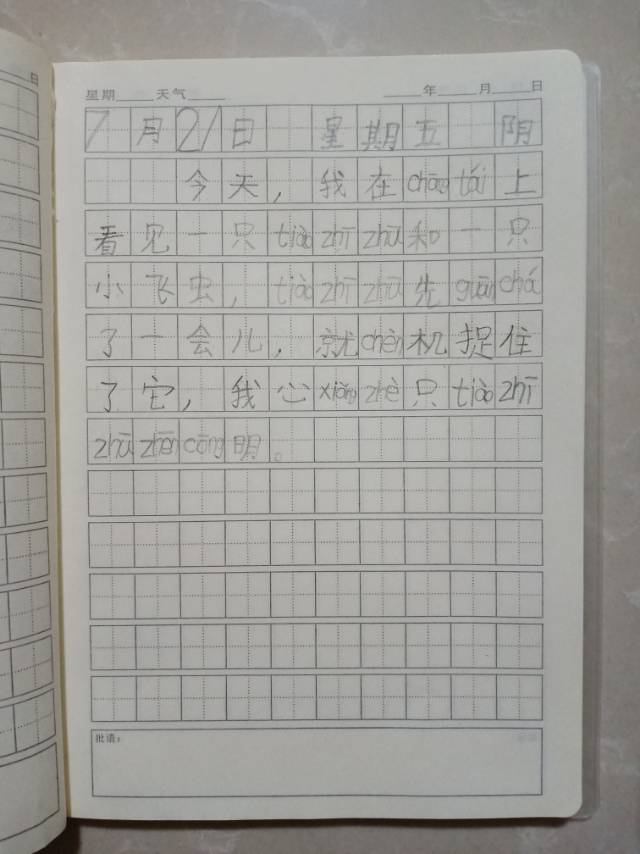 星期 天气 年 月 日
7月21日 星期五 阴
今天，我在chāng tái上
看见一只tiào zhī zhū和一只
小飞虫，tiào zhī zhū先guān chá
了一会儿，就chèn机捉住
了它，我心xiǎng zhè只tiào zhī
zhū zhēn cōng明。
批语：
日